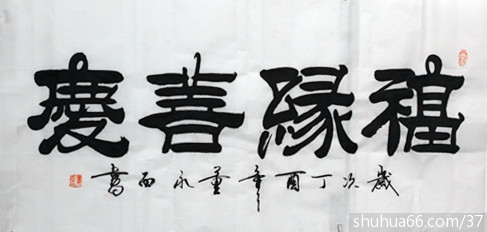 福緣善慶
歲次丁酉年董永西書
shuhua66.com/37